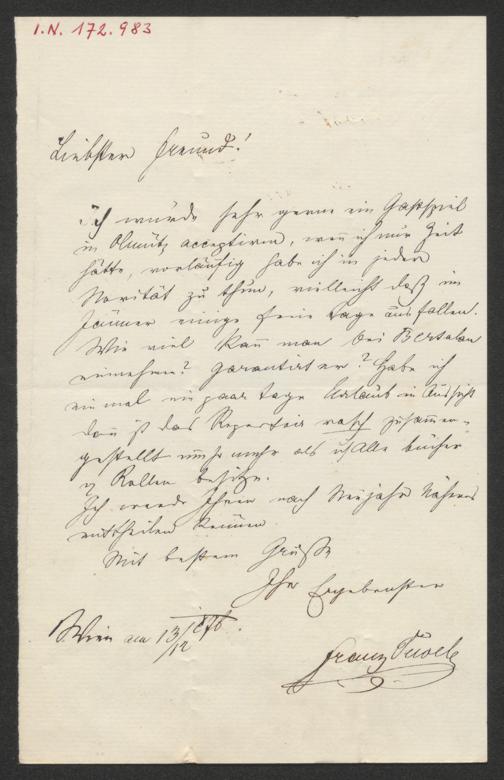 I.N. 172.983
Liebster Freund!
Ich würde sehr gerne ein Gastspiel
in Olmütz acceptiren, wenn ich nur Zeit
hätte, vorläufig habe ich in jeder
Novität zu thun, vielleicht daß im
Jänner einige freie Tage ausfallen.
Wie viel kann man bei Bertalan
einnehmen? garantirt er? Habe ich
einmal ein paar Tage Urlaub in Aussicht
dann ist das Repertoir rasch zusammen-
gestellt mehr als ich Alle Bücher
u Rollen besitze.
Ich werde Ihnen nach Neujahr Näheres
mittheilen können.
Mit bestem Gruße
Ihr Ergebenster
Wien am 13/12 1876.
Franz Tewele